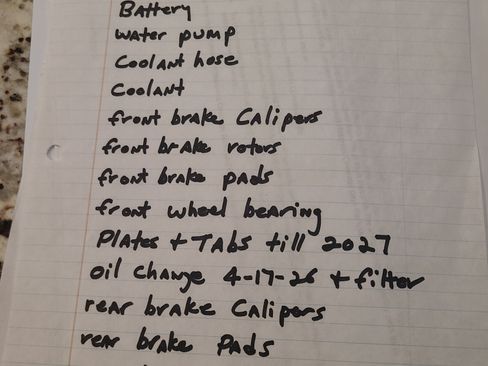 Battery
water pump
Coolant hose
Coolant
front brake Calipers
front brake rotors
front brake pads
front wheel bearing
Plates + TAbs till 2027
oil change 4-17-26 + filter
rear brake Calipers
rear brake Pads